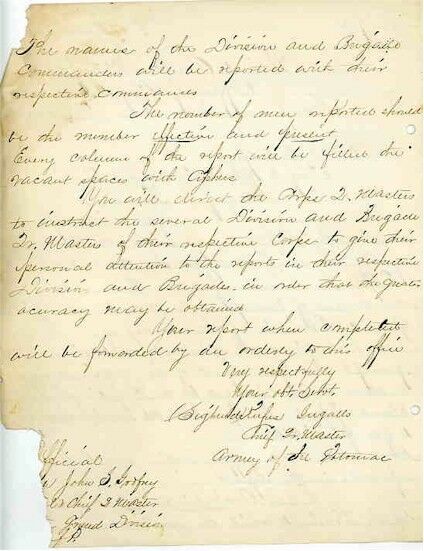 The names of the Division and Brigade
Commanders will be reported with their
respective Commands
The number of men reported should
be the number effective and present
Every column of the report will be filled the
vacant spaces with Ciphers
You will direct the Corps Q. Masters
to instruct the several Division and Brigade
Qr. Masters of their respective Corps to give their
personal attention to the reports in their respective
Division and Brigades in order that the greatest
acuracy may be obtained
Your report when completed
will be forwarded by an orderly to this office
Very respectfully
Your obt Servt
(Signed) Rufus Ingalls
Chief Qr Master
Army of the Potomac
Official
John S. Godfrey
Chief Q Master
Grand Division